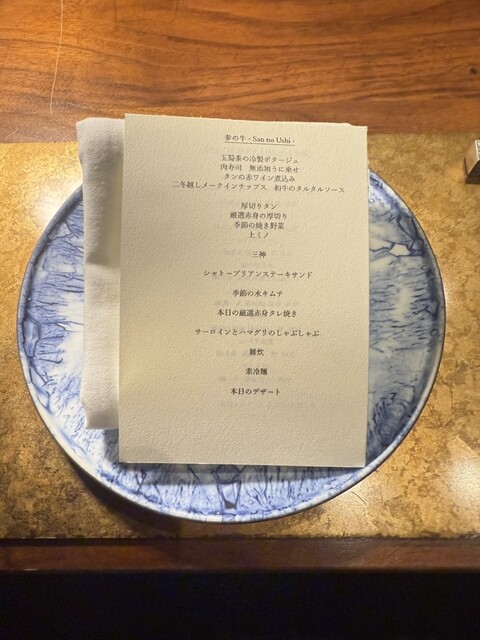 参の牛 - San no Ushi -
玉蜀黍の冷製ポタージュ
肉寿司 無添加うに乗せ
タンの赤ワイン煮込み
二冬越しメークインチップス 和牛のタルタルソース
厚切りタン
厳選赤身の厚切り
季節の焼き野菜
上ミノ
三神
シャトーブリアンステーキサンド
季節の水キムチ
本日の厳選赤身タレ焼き
サーロインとハマグリのしゃぶしゃぶ
雑炊
素冷麺
本日のデザート